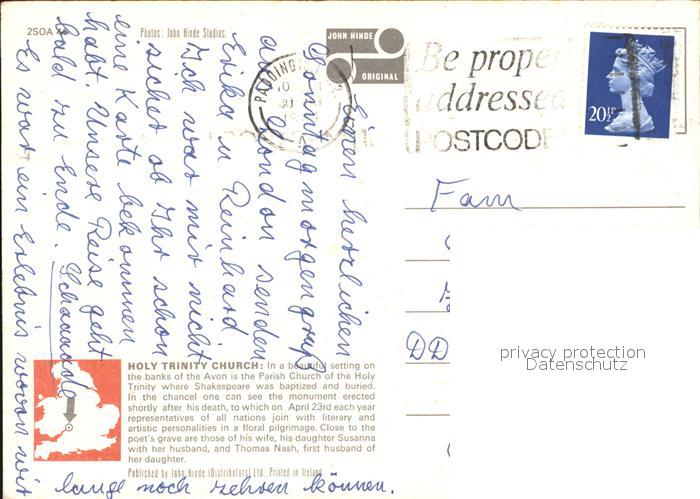 2SOA 44
Photos: John Hinde Studios.
JOHN HINDE
ORIGINAL
PADDINGTON
Be proper
addressed
POSTCODE
20½P
Einen herzlichen
Sonntagmorgengruß
aus London senden
Erika u Reinhard
Ich war mir nicht
sicher ob Ihr schon
eine Karte bekommen
habt. Unsere Reise geht
bald zu Ende. Schaaade
Es war ein Erlebnis wovon wir
lange noch zehren können.
Fam
DD
privacy protection
Datenschutz
HOLY TRINITY CHURCH: In a beautiful setting on
the banks of the Avon is the Parish Church of the Holy
Trinity where Shakespeare was baptized and buried.
In the chancel one can see the monument erected
shortly after his death, to which on April 23rd each year
representatives of all nations join with literary and
artistic personalities in a floral pilgrimage. Close to the
poet's grave are those of his wife, his daughter Susanna
with her husband, and Thomas Nash, first husband of
her daughter.
Published by John Hinde (Distributors) Ltd., Printed in Ireland